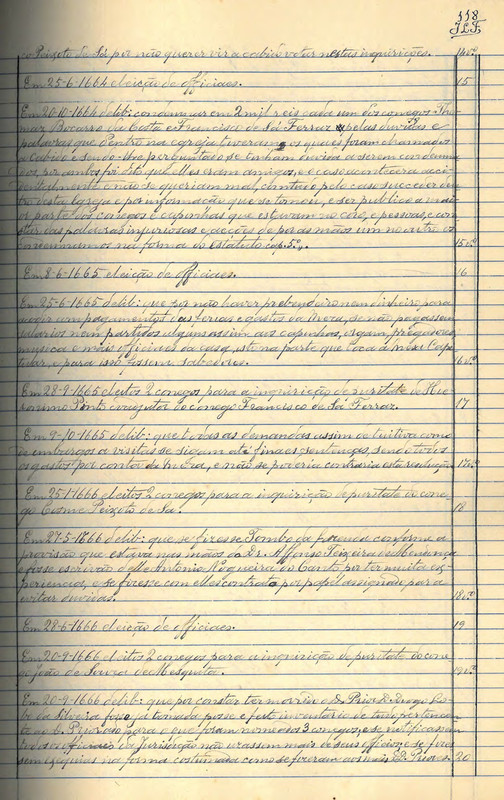 118
J.L.F.
co Peixoto de Sá por não querer vir a cabido votar nestas inquirições. 14v.º
Em 25-6-1664 eleição de officiaes. 15
Em 20-10-1664 delib: condemnar em 2 mil reis cada um dos conegos
da Costa e Francisco de Sá Ferraz pelas duvidas e
palavras que dentro na egreja tiveram os quaes foram chamados
a Cabido e sendo-lhe perguntado se tinham duvida a serem condemna
dos, por ambos foi dito que elles eram amigos, e o caso acontecera acci
dentalmente e não se queriam mal, comtudo pelo caso succeder den
tro desta Igreja e por informação que se tomou, e ser publico a mai
or parte dos conegos e capinhas que estavam no côro, e pessoas, e cons
tar das palavras injuriosas e acções de por as mãos um no outro os
condemnamos na forma do estatuto cap. 5.º. 15v.º
Em 8-6-1665 eleição de officiaes. 16
Em 25-6-1665 delib: que por não haver prebendeiro nem dinheiro para
acodir aos pagamentos das ferias e gastos da Meza, se não pagassem
salarios nem partidos alguns assim aos capinhas, orgam, prégadores,
musica e mais officiaes da casa, isto na parte que toca á Meza Capi
tular, e para isso fossem sabedores. 16v.º
Em 28-9-1665 eleitos 2 conegos para a inquirição de puritate de Hie-
ronimo Pinto coadjutor do conego Francisco de Sá Ferraz. 17
Em 9-10-1665 delib: que todas as demandas assim do
de embargos a visitas se sigam até finaes sentenças sendo todos
os gastos por conta da Meza, e não se poderia contraria esta resolução. 17v.º
Em 25-1-1666 eleitos 2 conegos para a inquirição de puritate do cone-
go Cosme Peixoto de Sá. 18
Em 27-5-1666 delib: que se fizesse Tombo da fazenda conforme a
provisão que estava nas mãos do Dr. Affonso Teixeira de Mendonça
e fosse escrivão delle Antonio Nogueira do Canto por ter muita ex-
periencia, e se fizesse com elle contracto por papel assignado para
evitar duvidas. 18v.º
Em 28-6-1666 eleição de officiaes. 19
Em 20-9-1666 eleitos 2 conegos para a inquirição de puritate do cone-
go João de Souza de Mesquita. 19v.º
Em 20-9-1666 delib: que por constar ter morrido o D. Prior D. Diogo Lo-
bo da Silveira fosse já tomada posse e feito inventario de tudo pertencen
te ao D. Priorado para o que foram nomeados 3 conegos, e se notificassem
todos os officiaes da jurisdição não usassem mais de seus officios, e se fizes
sem exequias na forma costumada como se fizeram aos mais D. Priores. 20